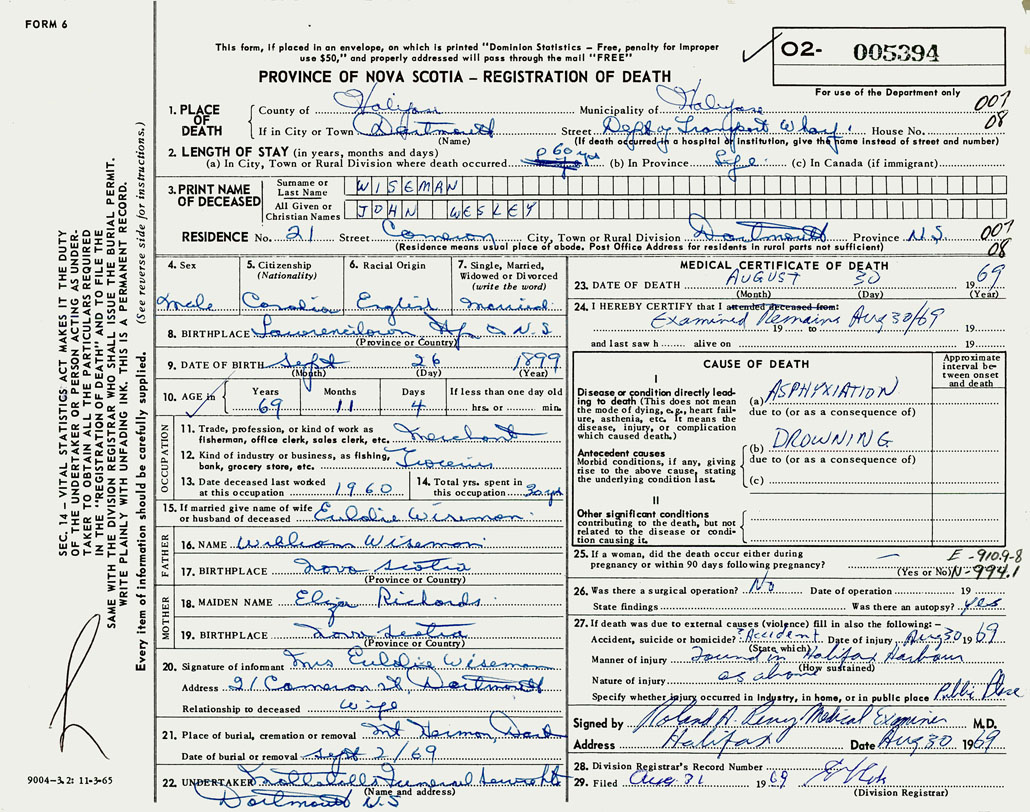 FORM 6
This form, if placed in an envelope, on which is printed "Dominion Statistics – Free, penalty for improper
use $50," and properly addressed will pass through the mail "FREE"
PROVINCE OF NOVA SCOTIA – REGISTRATION OF DEATH
O2- 005394
For use of the Department only
007
08
1. PLACE OF DEATH
County of Halifax Municipality of Halifax
If in City or Town Dartmouth Street Dept of Transport Wharf. House No.
(Name) (If death occurred in a hospital or institution, give the name instead of street and number)
2. LENGTH OF STAY (in years, months and days)
(a) In City, Town or Rural Division where death occurred 60 yrs (b) In Province Life (c) In Canada (if immigrant)
3. PRINT NAME OF DECEASED
Surname or Last Name WISEMAN
All Given or Christian Names JOHN WESLEY
RESIDENCE No. 21 Street Cameron City, Town or Rural Division Dartmouth Province N.S.
(Residence means usual place of abode. Post Office Address for residents in rural parts not sufficient)
007
08
4. Sex Male
5. Citizenship (Nationality) Canadian
6. Racial Origin English
7. Single, Married, Widowed or Divorced (write the word) Married.
8. BIRTHPLACE Lawrencetown Hfx Co N.S
(Province or Country)
9. DATE OF BIRTH Sept 26 1899
(Month) (Day) (Year)
10. AGE in Years 69 Months 11 Days 4 If less than one day old hrs. or min.
OCCUPATION
11. Trade, profession, or kind of work as fisherman, office clerk, sales clerk, etc. Merchant
12. Kind of industry or business, as fishing, bank, grocery store, etc. Groceries
13. Date deceased last worked at this occupation 1960
14. Total yrs. spent in this occupation 30 yrs
15. If married give name of wife or husband of deceased Eulalie Wiseman.
FATHER
16. NAME William Wiseman
17. BIRTHPLACE Nova Scotia
(Province or Country)
MOTHER
18. MAIDEN NAME Eliza Richards.
19. BIRTHPLACE Nova Scotia
(Province or Country)
20. Signature of informant Mrs Eulalie Wiseman
Address 21 Cameron St, Dartmouth
Relationship to deceased Wife
21. Place of burial, cremation or removal Mt Hermon, Dart
Date of burial or removal Sept 2/69
22. UNDERTAKER Funeral
(Name and address)
Dartmouth N.S
MEDICAL CERTIFICATE OF DEATH
23. DATE OF DEATH AUGUST 30 1969
(Month) (Day) (Year)
24. I HEREBY CERTIFY that I attended deceased from:
Examined Remains Aug 30/69
19 to 19
and last saw h alive on 19
CAUSE OF DEATH
Approximate interval between onset and death
I
Disease or condition directly leading to death (This does not mean the mode of dying, e.g., heart failure, asthenia, etc. It means the disease, injury, or complication which caused death.)
(a) ASPHYXIATION
due to (or as a consequence of)
Antecedent causes
Morbid conditions, if any, giving rise to the above cause, stating the underlying condition last.
(b) DROWNING
due to (or as a consequence of)
(c)
II
Other significant conditions
contributing to the death, but not related to the disease or condition causing it.
25. If a woman, did the death occur either during pregnancy or within 90 days following pregnancy? —
(Yes or No)
E-910.9-8
N-994.1
26. Was there a surgical operation? No Date of operation 19
State findings Was there an autopsy? Yes
27. If death was due to external causes (violence) fill in also the following:–
Accident, suicide or homicide? ?Accident Date of injury Aug 30 1969
(State which)
Manner of injury Found in Halifax Harbour
(How sustained)
Nature of injury as above
Specify whether injury occurred in Industry, in home, or in public place Public Place
Signed by Roland A. Perry Medical Examiner M.D.
Address Halifax Date Aug 30 1969
28. Division Registrar's Record Number
29. Filed Aug 31 1969
(Division Registrar)
SEC. 14 – VITAL STATISTICS ACT MAKES IT THE DUTY
OF THE UNDERTAKER OR PERSON ACTING AS UNDER-
TAKER TO OBTAIN ALL THE PARTICULARS REQUIRED
IN THE "REGISTRATION OF DEATH" AND TO FILE THE
SAME WITH THE DIVISION REGISTRAR WHO SHALL ISSUE THE BURIAL PERMIT.
WRITE PLAINLY WITH UNFADING INK. THIS IS A PERMANENT RECORD.
Every item of information should be carefully supplied. (See reverse side for instructions.)
9004-3.2: 11-3-65